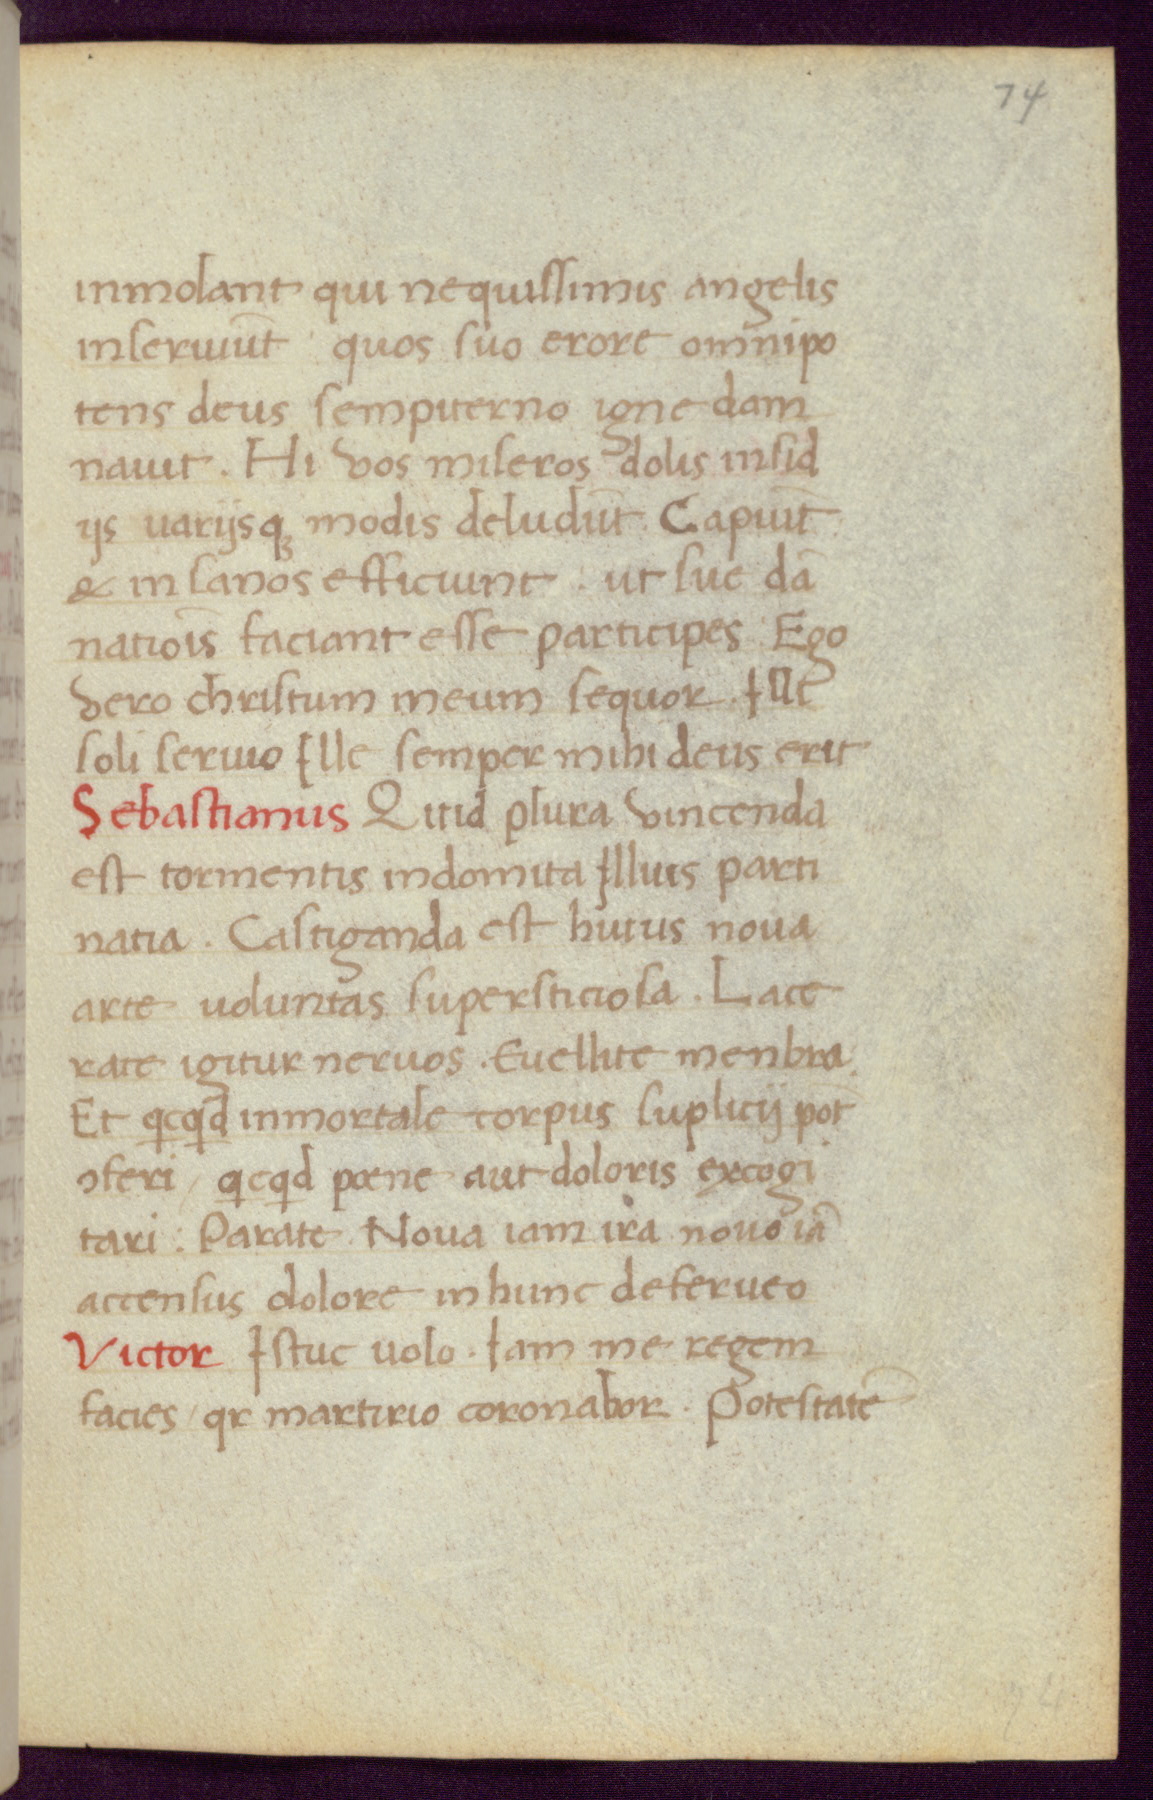 74
inmolant qui nequissimis angelis
inseruiūt quos suo erore omnipo
tens deus sempiterno igne dam
nauit. Hi vos miseros dolis insid
ijs uarijsqꝫ modis deludūt. Capiūt
& insanos efficiunt. ut sue dā
natiōis faciant esse participes. Ego
vero christum meum sequor. Illi
soli seruio Ille semper mihi deus erit
Sebastianus Quid plura vincenda
est tormentis indomita Illius parti
natia. Castiganda est huius noua
arte uoluntas supersticiosa. Lace
rate igitur neruos. Euellite menbra.
Et qcqd inmortale corpus suplicij pōt
ꝯferi / qcqd poene aut doloris excogi
tari: Parate. Noua iam ira nouo iā
accensus dolore in hunc deferueo
Victor Istuc uolo. Iam me regem
facies / qr martirio coronabor. Potestatē